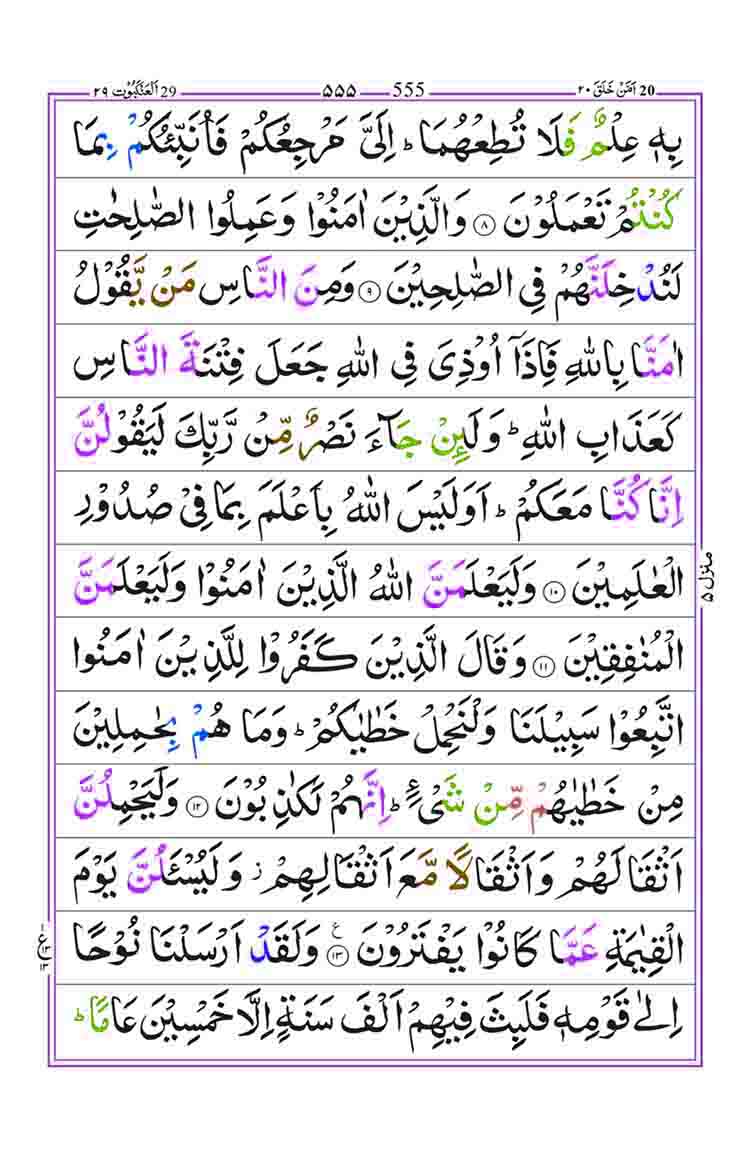 اَمَّنْ خَلَقَ ٢٠ 20 555 ۵۵۵ 29 اَلْعَنْكَبُوْت ٢٩
بِهٖ عِلْمٌ فَلَا تُطِعْهُمَا ؕ اِلَیَّ مَرْجِعُكُمْ فَاُنَبِّئُكُمْ بِمَا
كُنْتُمْ تَعْمَلُوْنَ ۝۸ وَالَّذِیْنَ اٰمَنُوْا وَعَمِلُوا الصّٰلِحٰتِ
لَنُدْخِلَنَّهُمْ فِی الصّٰلِحِیْنَ ۝۹ وَمِنَ النَّاسِ مَنْ یَّقُوْلُ
اٰمَنَّا بِاللّٰهِ فَاِذَاۤ اُوْذِیَ فِی اللّٰهِ جَعَلَ فِتْنَةَ النَّاسِ
كَعَذَابِ اللّٰهِ ؕ وَلَىِٕنْ جَآءَ نَصْرٌ مِّنْ رَّبِّكَ لَیَقُوْلُنَّ
اِنَّا كُنَّا مَعَكُمْ ؕ اَوَلَیْسَ اللّٰهُ بِاَعْلَمَ بِمَا فِیْ صُدُوْرِ
الْعٰلَمِیْنَ ۝۱۰ وَلَیَعْلَمَنَّ اللّٰهُ الَّذِیْنَ اٰمَنُوْا وَلَیَعْلَمَنَّ
الْمُنٰفِقِیْنَ ۝۱۱ وَقَالَ الَّذِیْنَ كَفَرُوْا لِلَّذِیْنَ اٰمَنُوا
اتَّبِعُوْا سَبِیْلَنَا وَلْنَحْمِلْ خَطٰیٰكُمْ ؕ وَمَا هُمْ بِحٰمِلِیْنَ
مِنْ خَطٰیٰهُمْ مِّنْ شَیْءٍ ؕ اِنَّهُمْ لَكٰذِبُوْنَ ۝۱۲ وَلَیَحْمِلُنَّ
اَثْقَالَهُمْ وَاَثْقَالًا مَّعَ اَثْقَالِهِمْ ؗ وَلَیُسْـَٔلُنَّ یَوْمَ
الْقِیٰمَةِ عَمَّا كَانُوْا یَفْتَرُوْنَ ۝۱۳ۧ وَلَقَدْ اَرْسَلْنَا نُوْحًا
اِلٰی قَوْمِهٖ فَلَبِثَ فِیْهِمْ اَلْفَ سَنَةٍ اِلَّا خَمْسِیْنَ عَامًا ؕ
منزل ۵
۱
ع
۱۳
۱۳